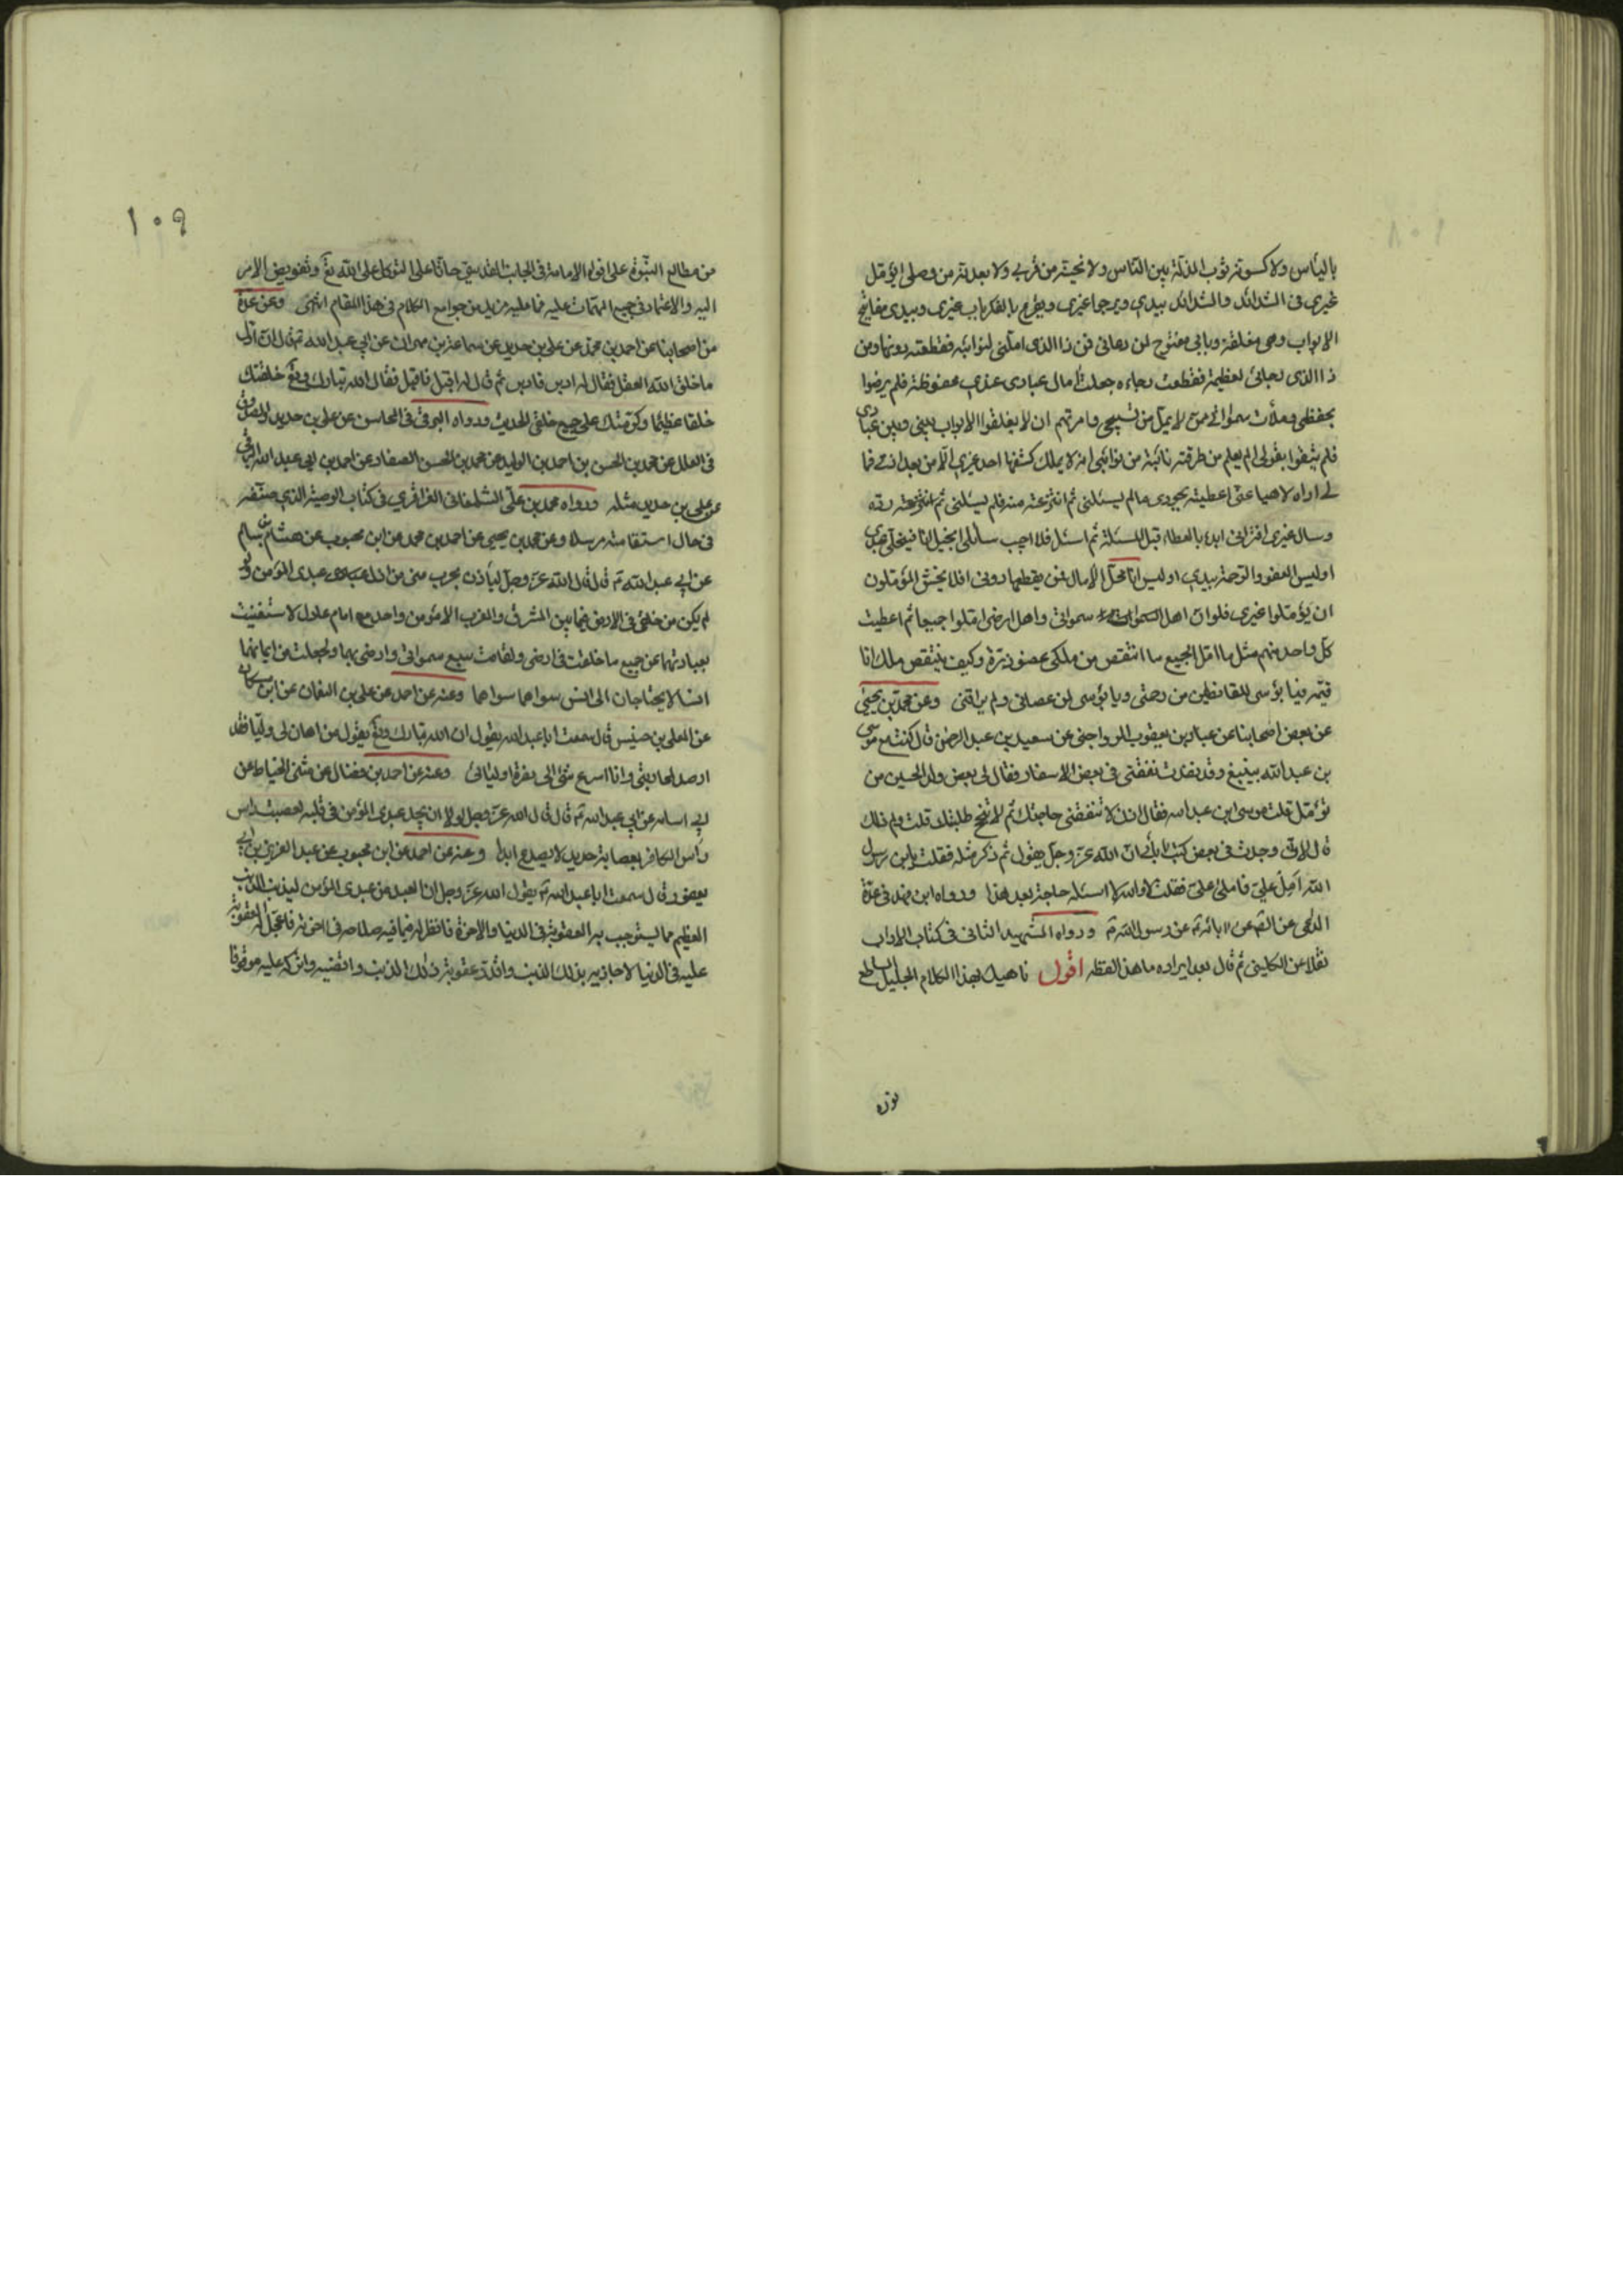 بالياس ولاكسونه ثوب المذلة بين الناس ولا نحينه من قربي ولا بعدنه من وصلى ايؤمل
غيرى فى الشدائد والشدائد بيدى ويرجا غيرى ويقرع بالفكر باب غيرى وبيدى مفاتيح
الابواب وهى مغلقة وبابى مفتوح لمن دعانى فمن ذا الذى املنى لنوائبه فقطعته دونها ومن
ذا الذى رجانى لعظيمة فقطعت رجاءه جعلت آمال عبادى عندى محفوظة فلم يرضوا
بحفظى وملأت سمواتى ممن لا يمل من تسبيحى وامرتهم ان لا يغلقوا الابواب بينى وبين عبادى
فلم يثقوا بقولى الم يعلم من طرقته نائبة من نوائبى انه لا يملك كشفها احد غيرى الا من بعد اذنى فما
لى اراه لاهيا عنى اعطيته بجودى مالم يسئلنى ثم انتزعته منه فلم يسئلنى رده
وسال غيرى افترانى ابدء بالعطاء قبل المسئلة ثم اسئل فلا اجيب سائلى ابخيل انا فيبخلنى عبدى
اوليس العفو والرحمة بيدى اوليس انا محل الآمال فمن يقطعها دونى افلا يخشى المؤملون
ان يؤملوا غيرى فلو ان اهل سمواتى واهل ارضى املوا جميعا ثم اعطيت
كل واحد منهم مثل ما امل الجميع ما انتقص من ملكى عضو ذرة وكيف ينتقص ملك انا
قيمه فيا بؤسى للقانطين من رحمتى ويا بؤسى لمن عصانى ولم يراقبنى وعن محمد بن يحيى
عن بعض اصحابنا عن عباد بن يعقوب الرواجنى عن سعيد بن عبد الرحمن قال كنت مع موسى
بن عبد الله بينبع وقد نفدت نفقتى فى بعض الاسفار فقال لى بعض ولد الحسين من
تؤمل قلت موسى ابن عبد الله فقال اذن لا تقضى حاجتك ثم لا تنجح طلبتك قلت ولم ذلك
قال لانى وجدت فى بعض كتب ابائى ان الله عز وجل يقول ثم ذكر مثله فقلت يا بن رسول
الله امل على فاملى على فقلت لا والله لا اسئله حاجة بعد هذا ورواه ابن فهد فى عدة
الداعى عن الصم عن ابائه عن رسول الله ورواه الشهيد الثانى فى كتاب الاداب
نقلا عن الكلينى ثم قال بعد ايراده ما هذا لفظه اقول ناهيك بهذا الكلام الجليل الساطع
نوره
١٠٩
من مطالع النبوة على افق الامامة فى الجانب القدسى حاثا على التوكل على الله تع وتفويض الامر
اليه والاعتماد فى جميع المهمات عليه فما عليه مزيد من جوامع الكلام فى هذا المقام انتهى وعن عدة
من اصحابنا عن احمد بن محمد عن على بن حديد عن سماعة بن مهران عن ابى عبد الله قال ان اول
ما خلق الله العقل فقال له ادبر فادبر ثم قال له اقبل فاقبل فقال الله تبارك وتع خلقتك
خلقا عظيما وكرمتك على جميع خلقى الحديث ورواه البرقى فى المحاسن عن على بن حديد والصدوق
فى العلل عن محمد بن الحسن بن احمد بن الوليد عن محمد بن الحسن الصفار عن احمد بن ابى عبد الله البرقى
عن على بن حديد مثله ورواه محمد بن على الشلمغانى العزاقرى فى كتاب الوصية الذى صنفه
فى حال استقامته مرسلا وعن محمد بن يحيى عن احمد بن محمد عن ابن محبوب عن هشام بن سالم
عن ابى عبد الله قال قال الله عز وجل ليأذن بحرب منى من اذل عبدى المؤمن ولو
لم يكن من خلقى فى الارض فيما بين المشرق والمغرب الا مؤمن واحد مع امام عادل لاستغنيت
بعبادتهما عن جميع ما خلقت فى ارضى ولقامت سبع سمواتى وارضى بهما ولجعلت من ايمانهما
انسا لا يحتاجان الى انس سواهما وعنه عن احمد عن على بن النعمان عن ابن مسكان
عن المعلى بن خنيس قال سمعت ابا عبد الله يقول ان الله تبارك وتع يقول من اهان لى وليا فقد
ارصد لمحاربتى وانا اسرع شئ الى نصرة اوليائى وعنه عن احمد بن فضال عن مثنى الحناط عن
ابى اسامه عن ابى عبد الله قال قال الله عز وجل لولا ان يجد عبدى المؤمن فى قلبه لعصبت راس
راس الكافر بعصابة حديد لا يصدع ابدا وعنه عن احمد عن ابن محبوب عن عبد العزيز بن ابى
يعفور قال سمعت ابا عبد الله يقول الله عز وجل ان العبد من عبدى المؤمن ليذنب الذنب
العظيم مما يستوجب به العقوبة فى الدنيا والاخرة فانظر له فيما فيه صلاحه فى اخرته فاعجل له العقوبة
عليه فى الدنيا لاجازيه بذلك الذنب واقدر عقوبة ذلك الذنب واقضيه واتركه عليه موقوفا